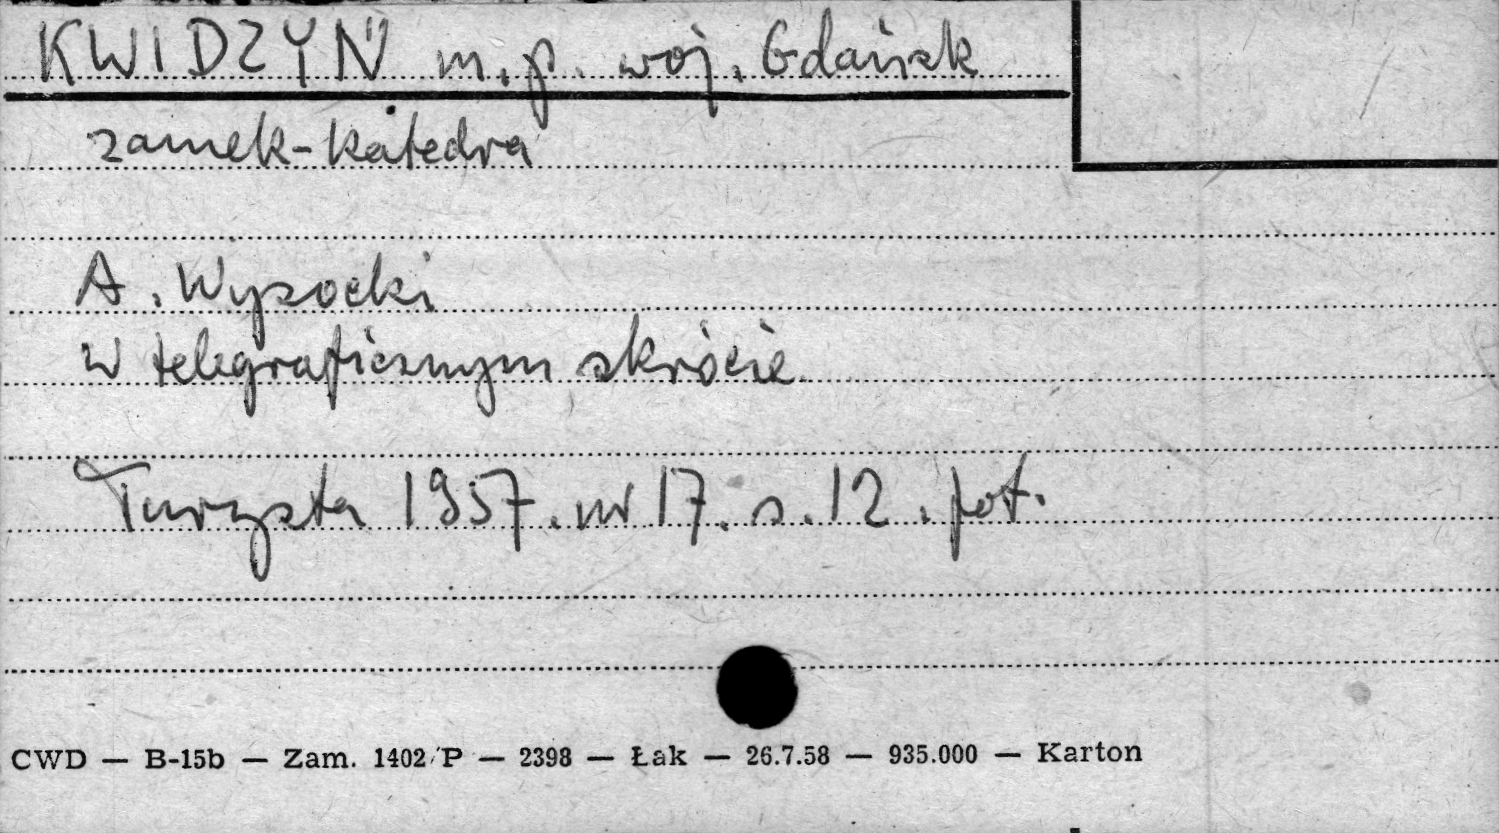 KWIDZYN m.p. woj. Gdańsk
zamek-katedra
A. Wysocki
W telegraficznym skrócie
Turysta 1957. nr 17. s. 12. fot.
CWD — B-15b — Zam. 1402/P — 2398 — Łak — 26.7.58 — 935.000 — Karton